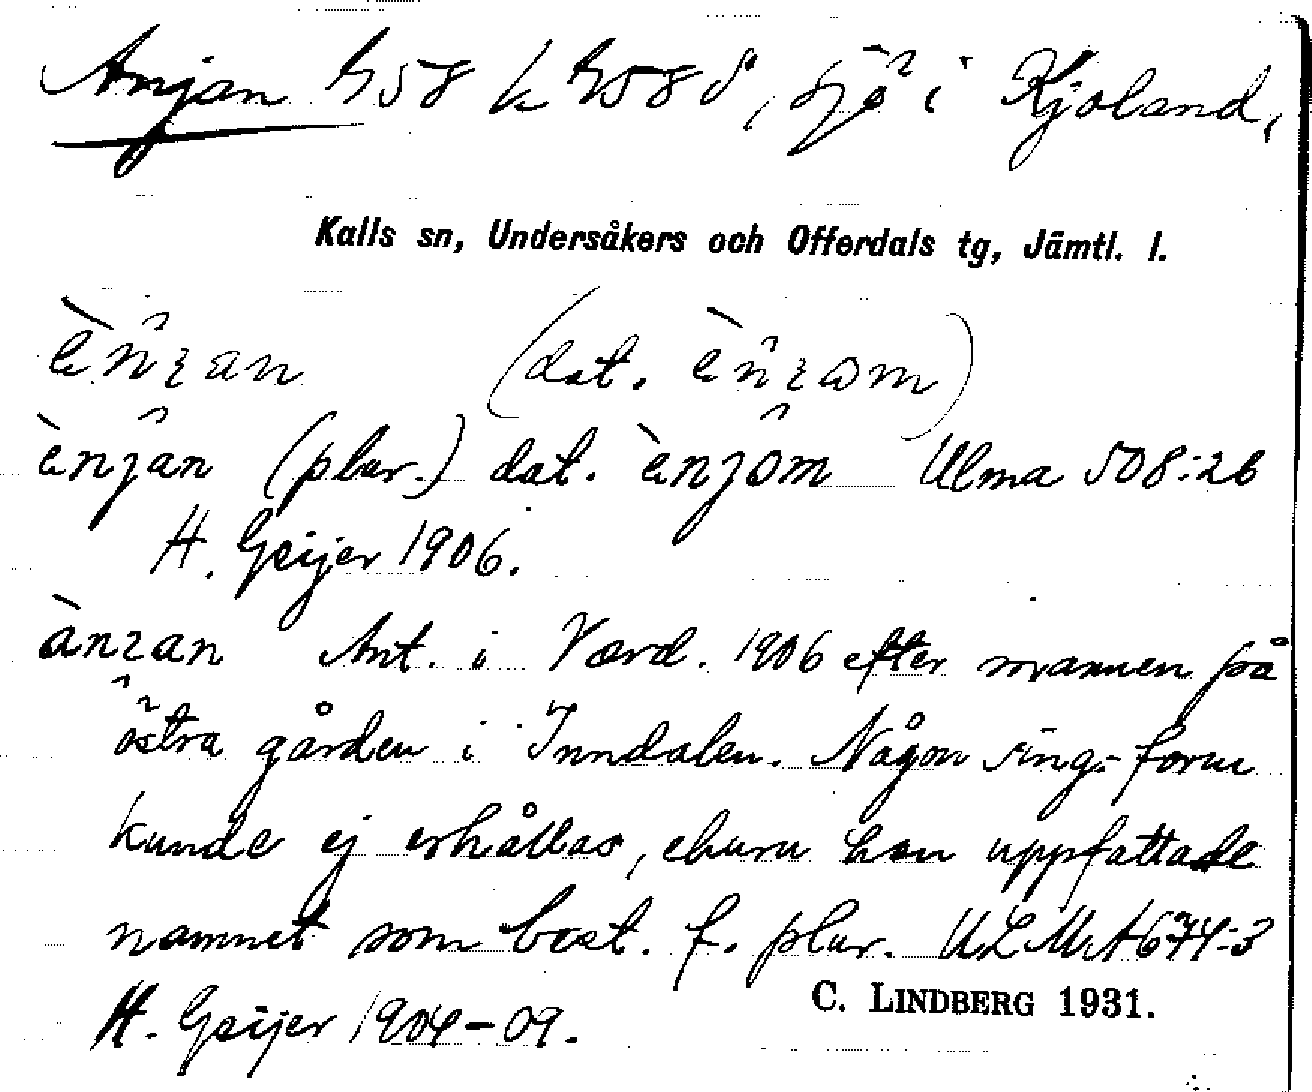 Anjan 458 k 458 d, sjö i Kjoland,
Kalls sn, Undersåkers och Offerdals tg, Jämtl. l.
(dat.
ènjan (plur.) dat. ènjom Ulma 508:26
H. Geijer 1906.
ànzan Ant. i Værd. 1906 efter mannen på
östra gården i Inndalen. Någon sing-form
kunde ej erhållas, churu han uppfattade
namnet som best. f. plur. ULMA 674:3
H. Geijer 1904-09.
C. LINDBERG 1931.